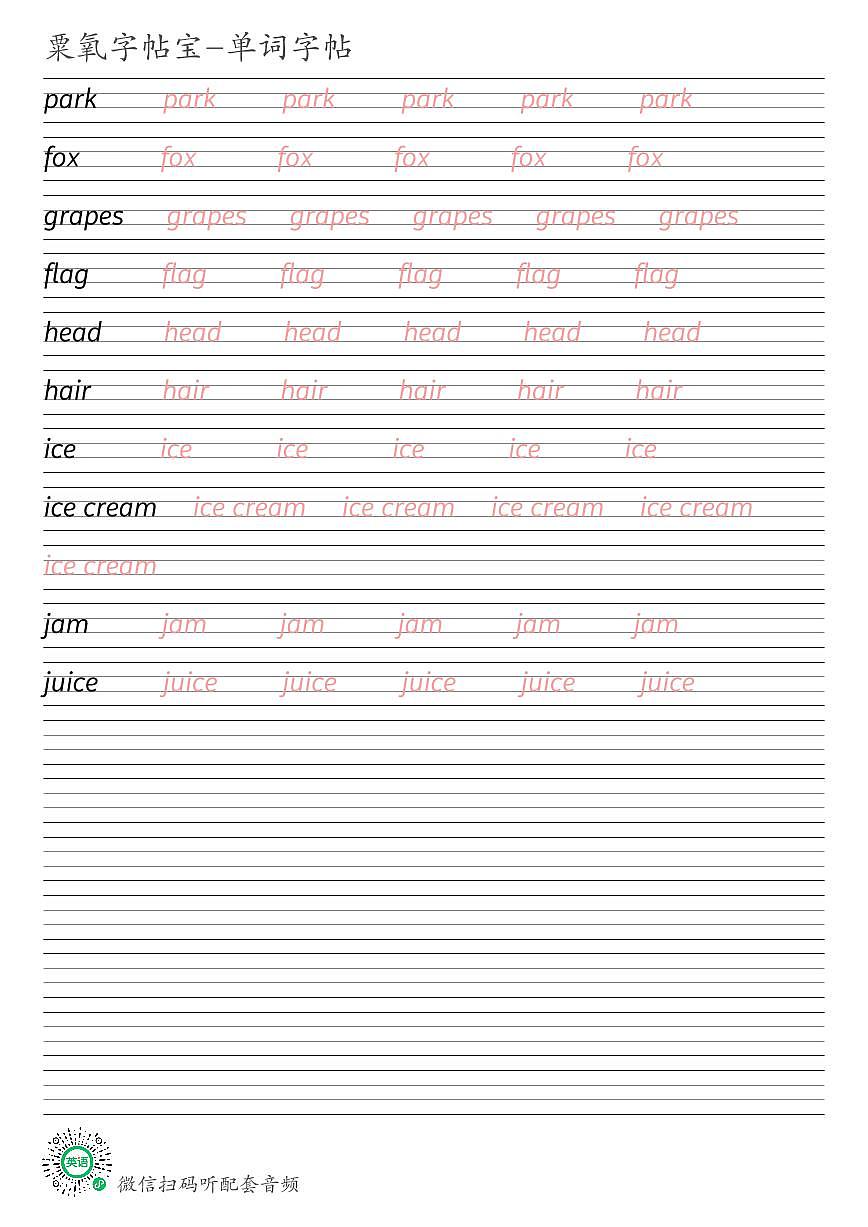 粟氧字帖宝-单词字帖
park park park park park park
fox fox fox fox fox fox
grapes grapes grapes grapes grapes grapes
flag flag flag flag flag flag
head head head head head head
hair hair hair hair hair hair
ice ice ice ice ice ice
ice cream ice cream ice cream ice cream ice cream
ice cream
jam jam jam jam jam jam
juice juice juice juice juice juice
英语
微信扫码听配套音频